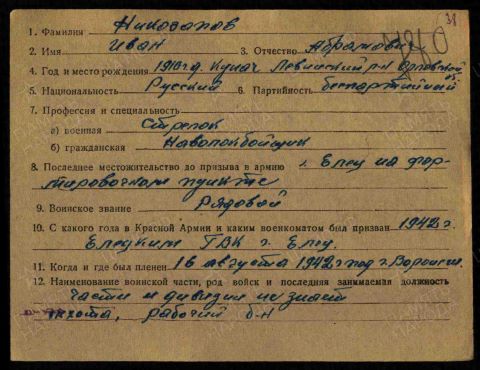 38
1. Фамилия Никозапов
2. Имя Иван 3. Отчество Абрамович
4. Год и место рождения 1910 г.р. Левинский р-н Орловской об.
5. Национальность Русский 6. Партийность беспартийный
7. Профессия и специальность
а) военная Стрелок
б) гражданская
8. Последнее местожительство до призыва в армию г. Елец на фор-
мировочном пункте
9. Воинское звание Рядовой
10. С какого года в Красной Армии и каким военкоматом был призван 1942 г.
Елецким ГВК г. Елец.
11. Когда и где был пленен 16 августа 1942 г под г. Воронеж.
12. Наименование воинской части, род войск и последняя занимаемая должность
части и дивизии не знает
пехота, рабочий б-н